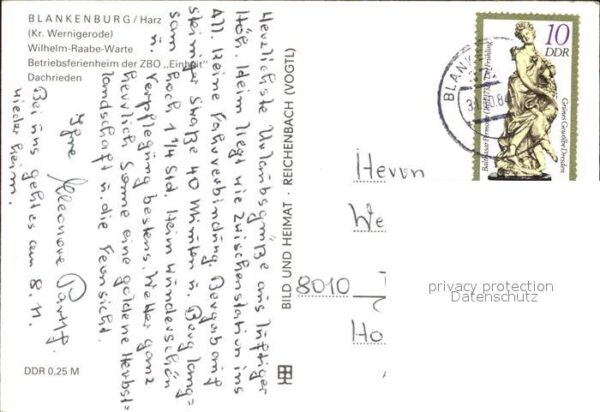 BLANKENBURG / Harz
(Kr. Wernigerode)
Wilhelm-Raabe-Warte
Betriebsferienheim der ZBO „Einheit"
Dachrieden
Herzlichste Urlaubsgrüße aus luftiger
Höh. Heim liegt wie Zwischenstation ins
All. Keine Fahrverbindung. Bergab auf
steiniger Straße 40 Minuten u. Berg lang=
sam hoch 1 1/4 Std. Heim wunderschön
u. Verpflegung bestens. Wetter ganz
herrlich Sonne eine goldene Herbst=
landschaft u. die Fernsicht.
Ihre Eleonore
Bei uns geht es am 8. 11.
wieder heim.
DDR 0,25 M
BILD UND HEIMAT · REICHENBACH (VOGTL)
10
DDR
Balthasar Permoser
Der Frühling
Grünes Gewölbe Dresden
BLANK
Herrn
We
8010
Ho
privacy protection
Datenschutz